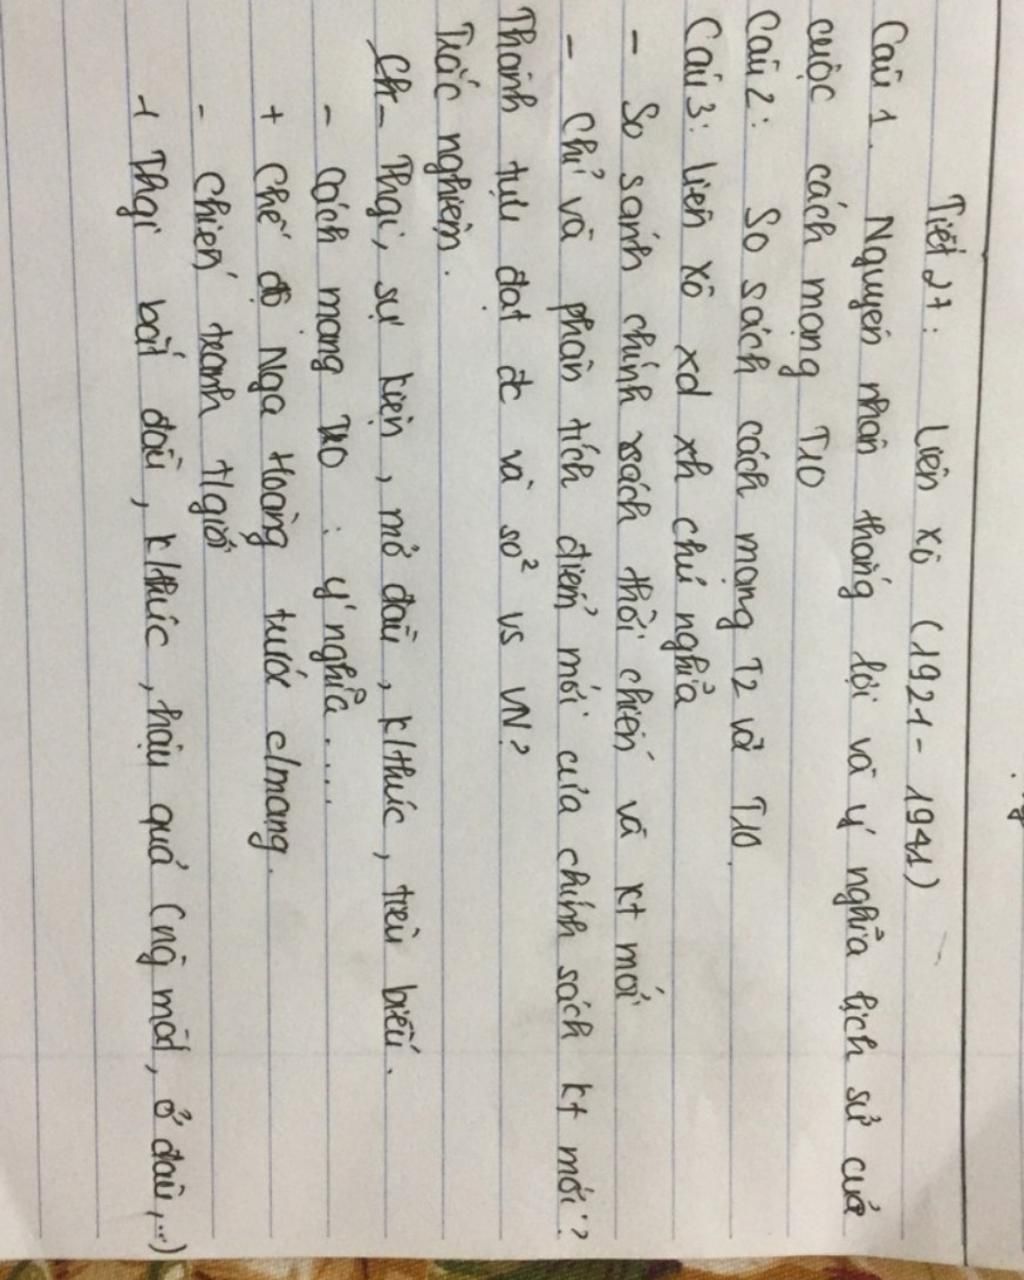 Tiết 27: Liên xô (1921-1941)
Câu 1. Nguyên nhân thắng lợi và ý nghĩa lịch sử của
cuộc cách mạng T10
Câu 2: So sách cách mạng T2 và T10.
Câu 3: liên xô xd xh chủ nghĩa
- So sánh chính sách thời chiến và kt mới
- Chỉ và phân tích điểm mới của chính sách kt mới?
Thành tựu đạt đc và so² vs VN?
Trắc nghiệm.
- Thgi, sự kiện, mở đầu, k/thúc, tiêu biểu.
- Cách mạng T10: ý nghĩa....
+ Chế độ Nga Hoàng trước c/mạng.
- Chiến tranh t/giới
+ Thgi bắt đầu, k/thúc, hậu quả (ng mất, ở đâu,...)